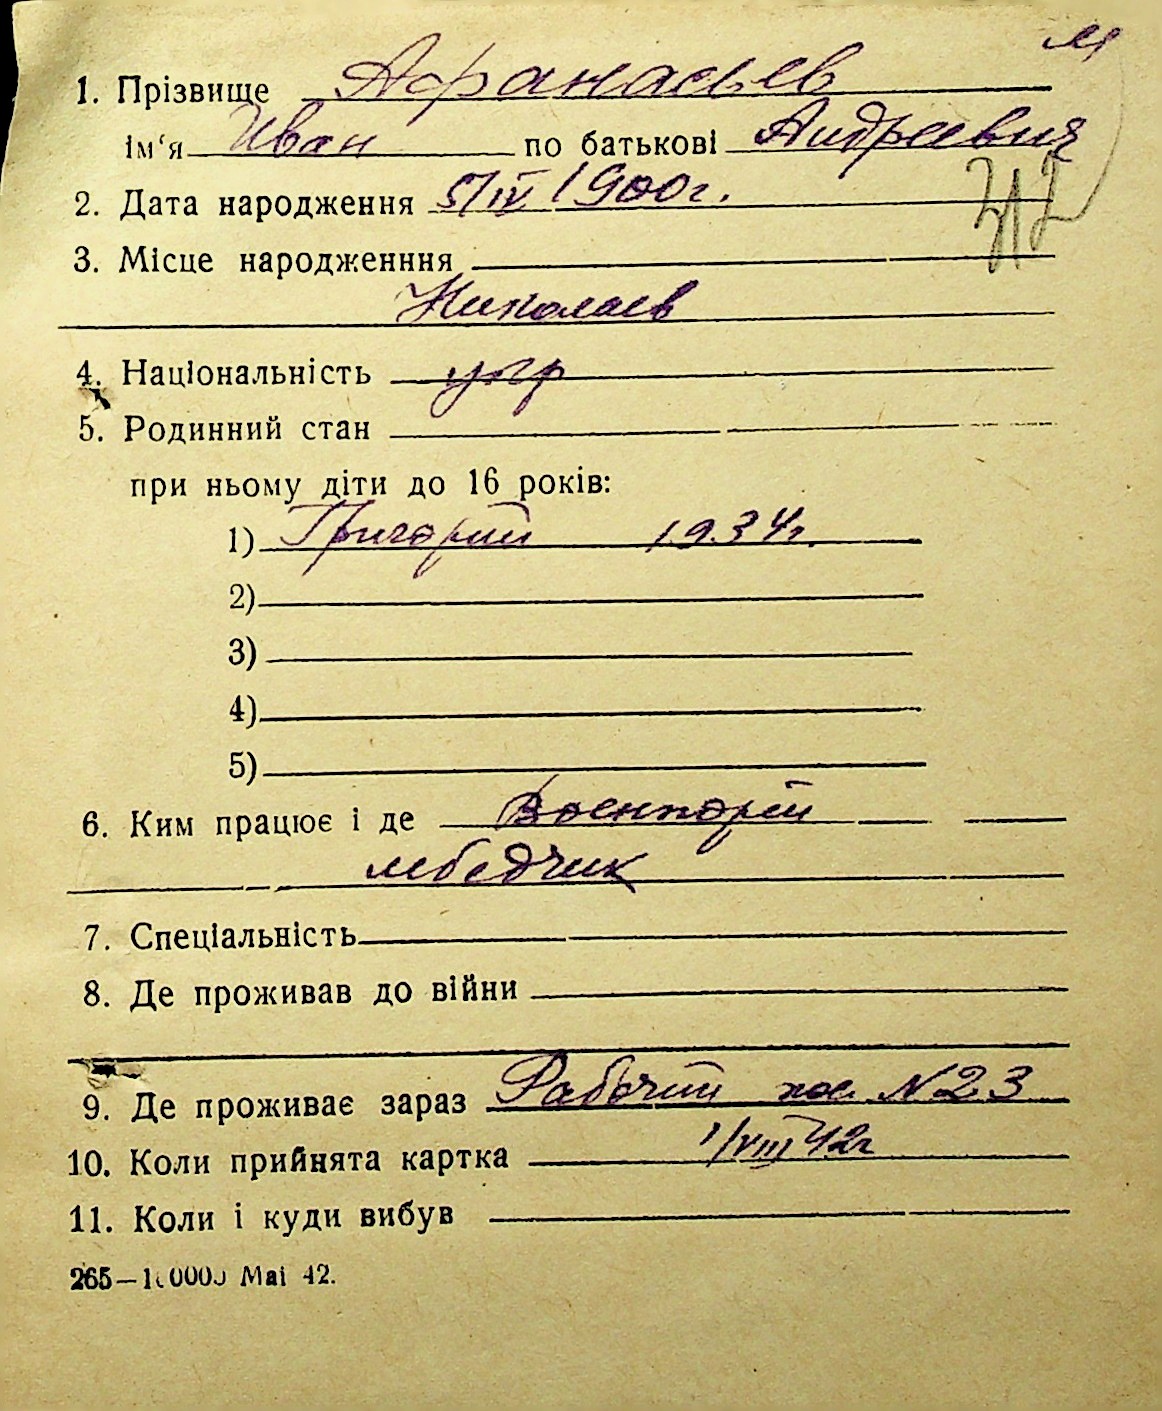 1. Прізвище Афанасьев
ім‘я Иван по батькові Андреевич
2. Дата народження 5/IV 1900г.
3. Місце народженння
Николаев
4. Національність укр
5. Родинний стан
при ньому діти до 16 років:
1) Григорий 1934г.
2)
3)
4)
5)
6. Ким працює і де Военторг
7. Спеціальність
8. Де проживав до війни
9. Де проживає зараз Рабочий пос. N 23
10. Коли прийнята картка 1/VIII 42г
11. Коли і куди вибув
265—10000 Mai 42.